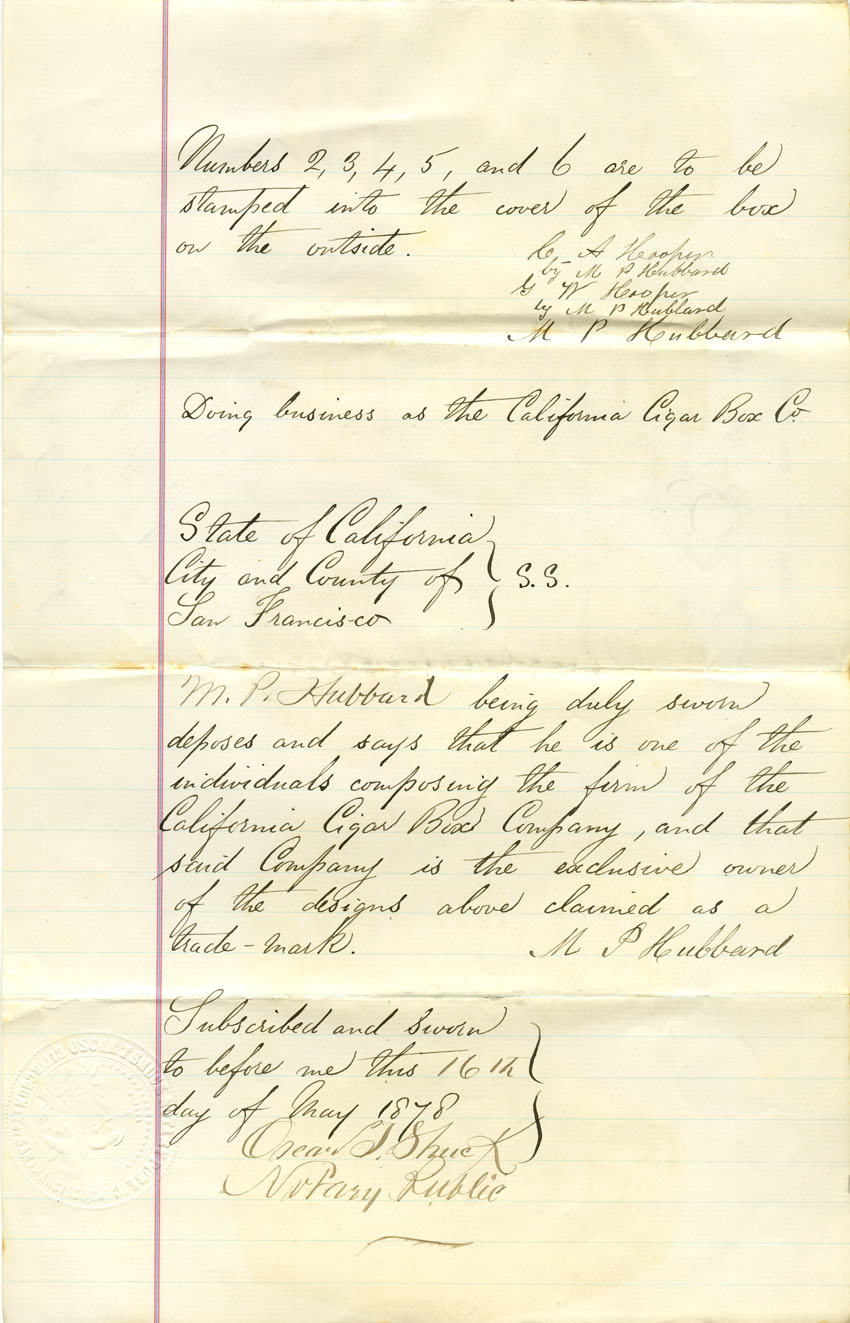 Numbers 2, 3, 4, 5, and 6 are to be
stamped into the cover of the box
on the outside.
C. A Hooper
by M P Hubbard
G W Hooper
by M P Hubbard
M P Hubbard
Doing business as the California Cigar Box Co.
State of California
City and County of } S.S.
San Francisco
M. P. Hubbard being duly sworn
deposes and says that he is one of the
individuals composing the firm of the
California Cigar Box Company, and that
said Company is the exclusive owner
of the designs above claimed as a
trade-mark. M P Hubbard
Subscribed and sworn
to before me this 16th
day of May 1878
Oscar T. Shuck
Notary Public